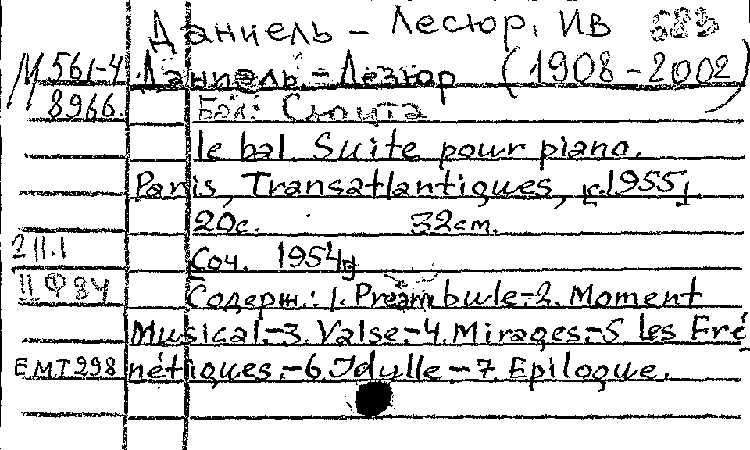 Даниель - Лесюр, Ив
М 561-4 Даниель - Лезюр (1908-2002)
8966. Бал: Сюита
le bal. Suite pour piano.
Paris, Transatlantiques, [c.1955]
20с. 32см.
2 II.1 Соч. 1954г
II Ф 84 Содерж.: 1. Preambule.-2. Moment
Musical.-3. Valse.-4. Mirages.-5 les Fré
EMT 298 nétiques.-6. Idylle.-7. Epilogue.